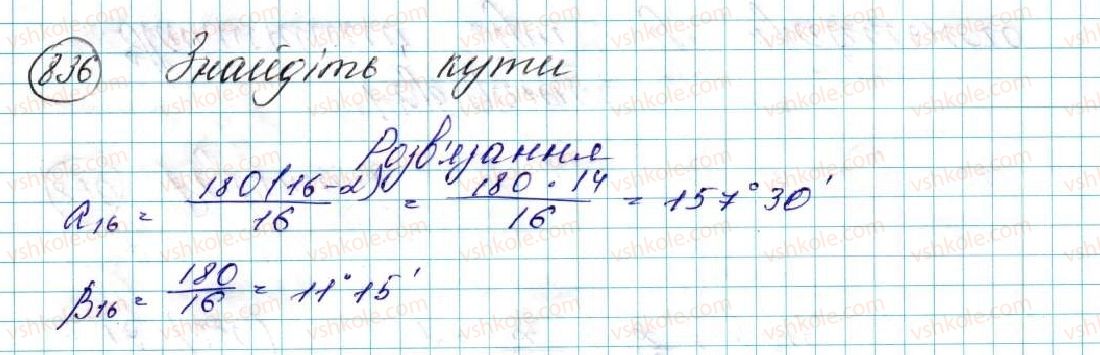 836 Знайдіть кути
Розв'язання
α₁₆ = 180(16-2)/16 = 180·14/16 = 157°30'
β₁₆ = 180/16 = 11°15'